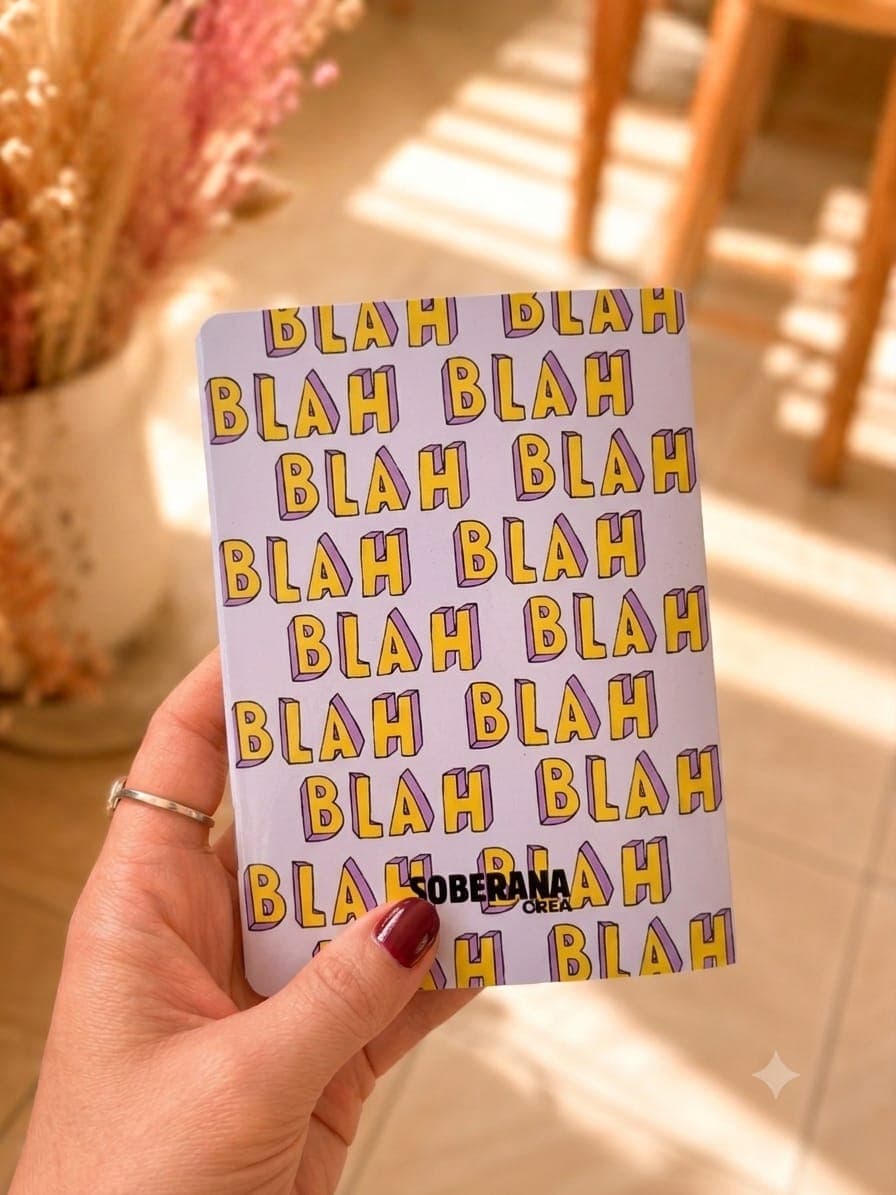 BLAH BLAH
BLAH BLAH
BLAH BLAH
BLAH BLAH
BLAH BLAH
BLAH BLAH
BLAH BLAH
BLAH BLAH
SOBERANA
CREA
BLAH BLAH